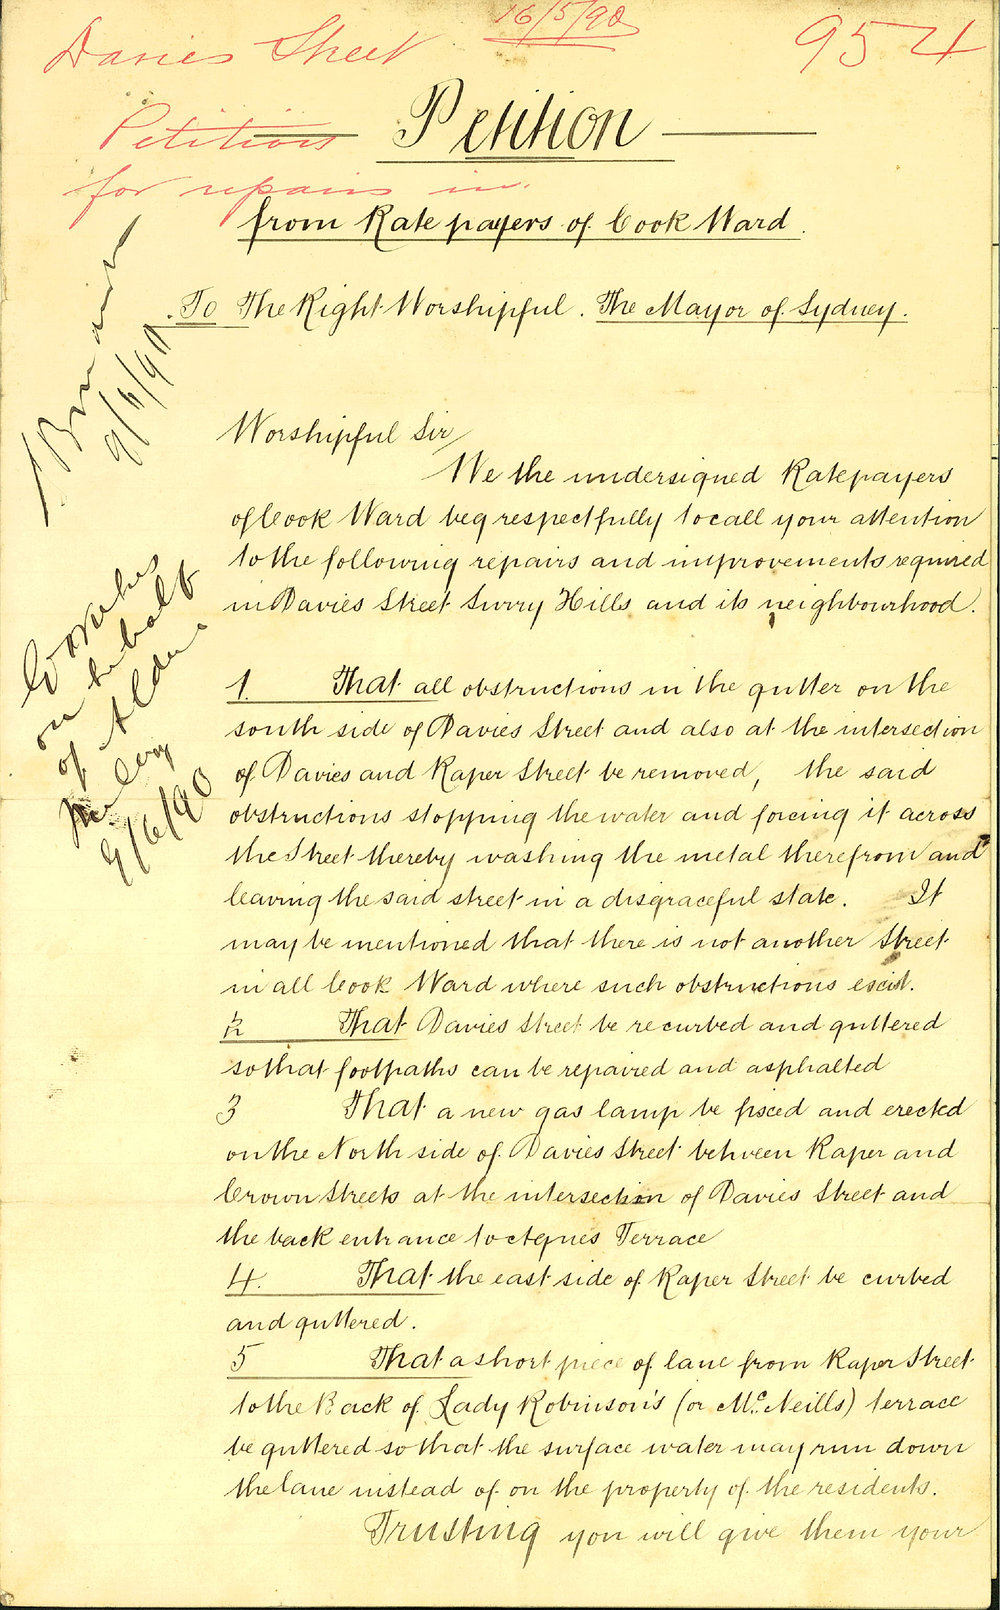 Davies Street
16/5/90
954
Petition
for repairs in.
Petition
from Ratepayers of Cook Ward.
To The Right Worshipful. The Mayor of Sydney.
9/6/90
on behalf
of Alderm
9/6/90
Worshipful Sir/
We the undersigned Ratepayers
of Cook Ward beg respectfully to call your attention
to the following repairs and improvements required
in Davies Street Surry Hills and its neighbourhood.
1. That all obstructions in the gutter on the
south side of Davies Street and also at the intersection
of Davies and Raper Street be removed, the said
obstructions stopping the water and forcing it across
the Street thereby washing the metal therefrom and
leaving the said street in a disgraceful state. It
may be mentioned that there is not another Street
in all Cook Ward where such obstructions exist.
2 That Davies Street be recurbed and guttered
so that footpaths can be repaired and asphalted
3 That a new gas lamp be fixed and erected
on the North side of Davies Street between Raper and
Crown Streets at the intersection of Davies Street and
the back entrance to Agnes Terrace
4. That the east side of Raper Street be curbed
and guttered.
5 That a short piece of lane from Raper Street
to the Back of Lady Robinson's (or Mc. Neills) terrace
be guttered so that the surface water may run down
the lane instead of on the property of the residents.
Trusting you will give them your